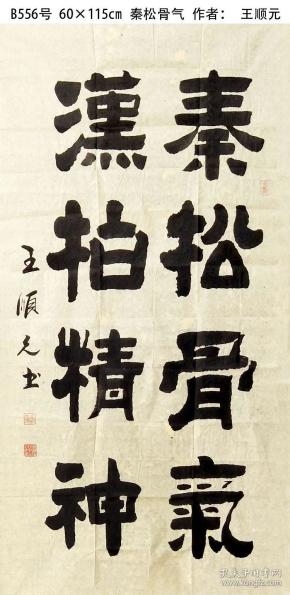 B556号 60×115cm 秦松骨气 作者： 王顺元
秦松骨氣
漢柏精神
王順元书
孔夫子旧书网